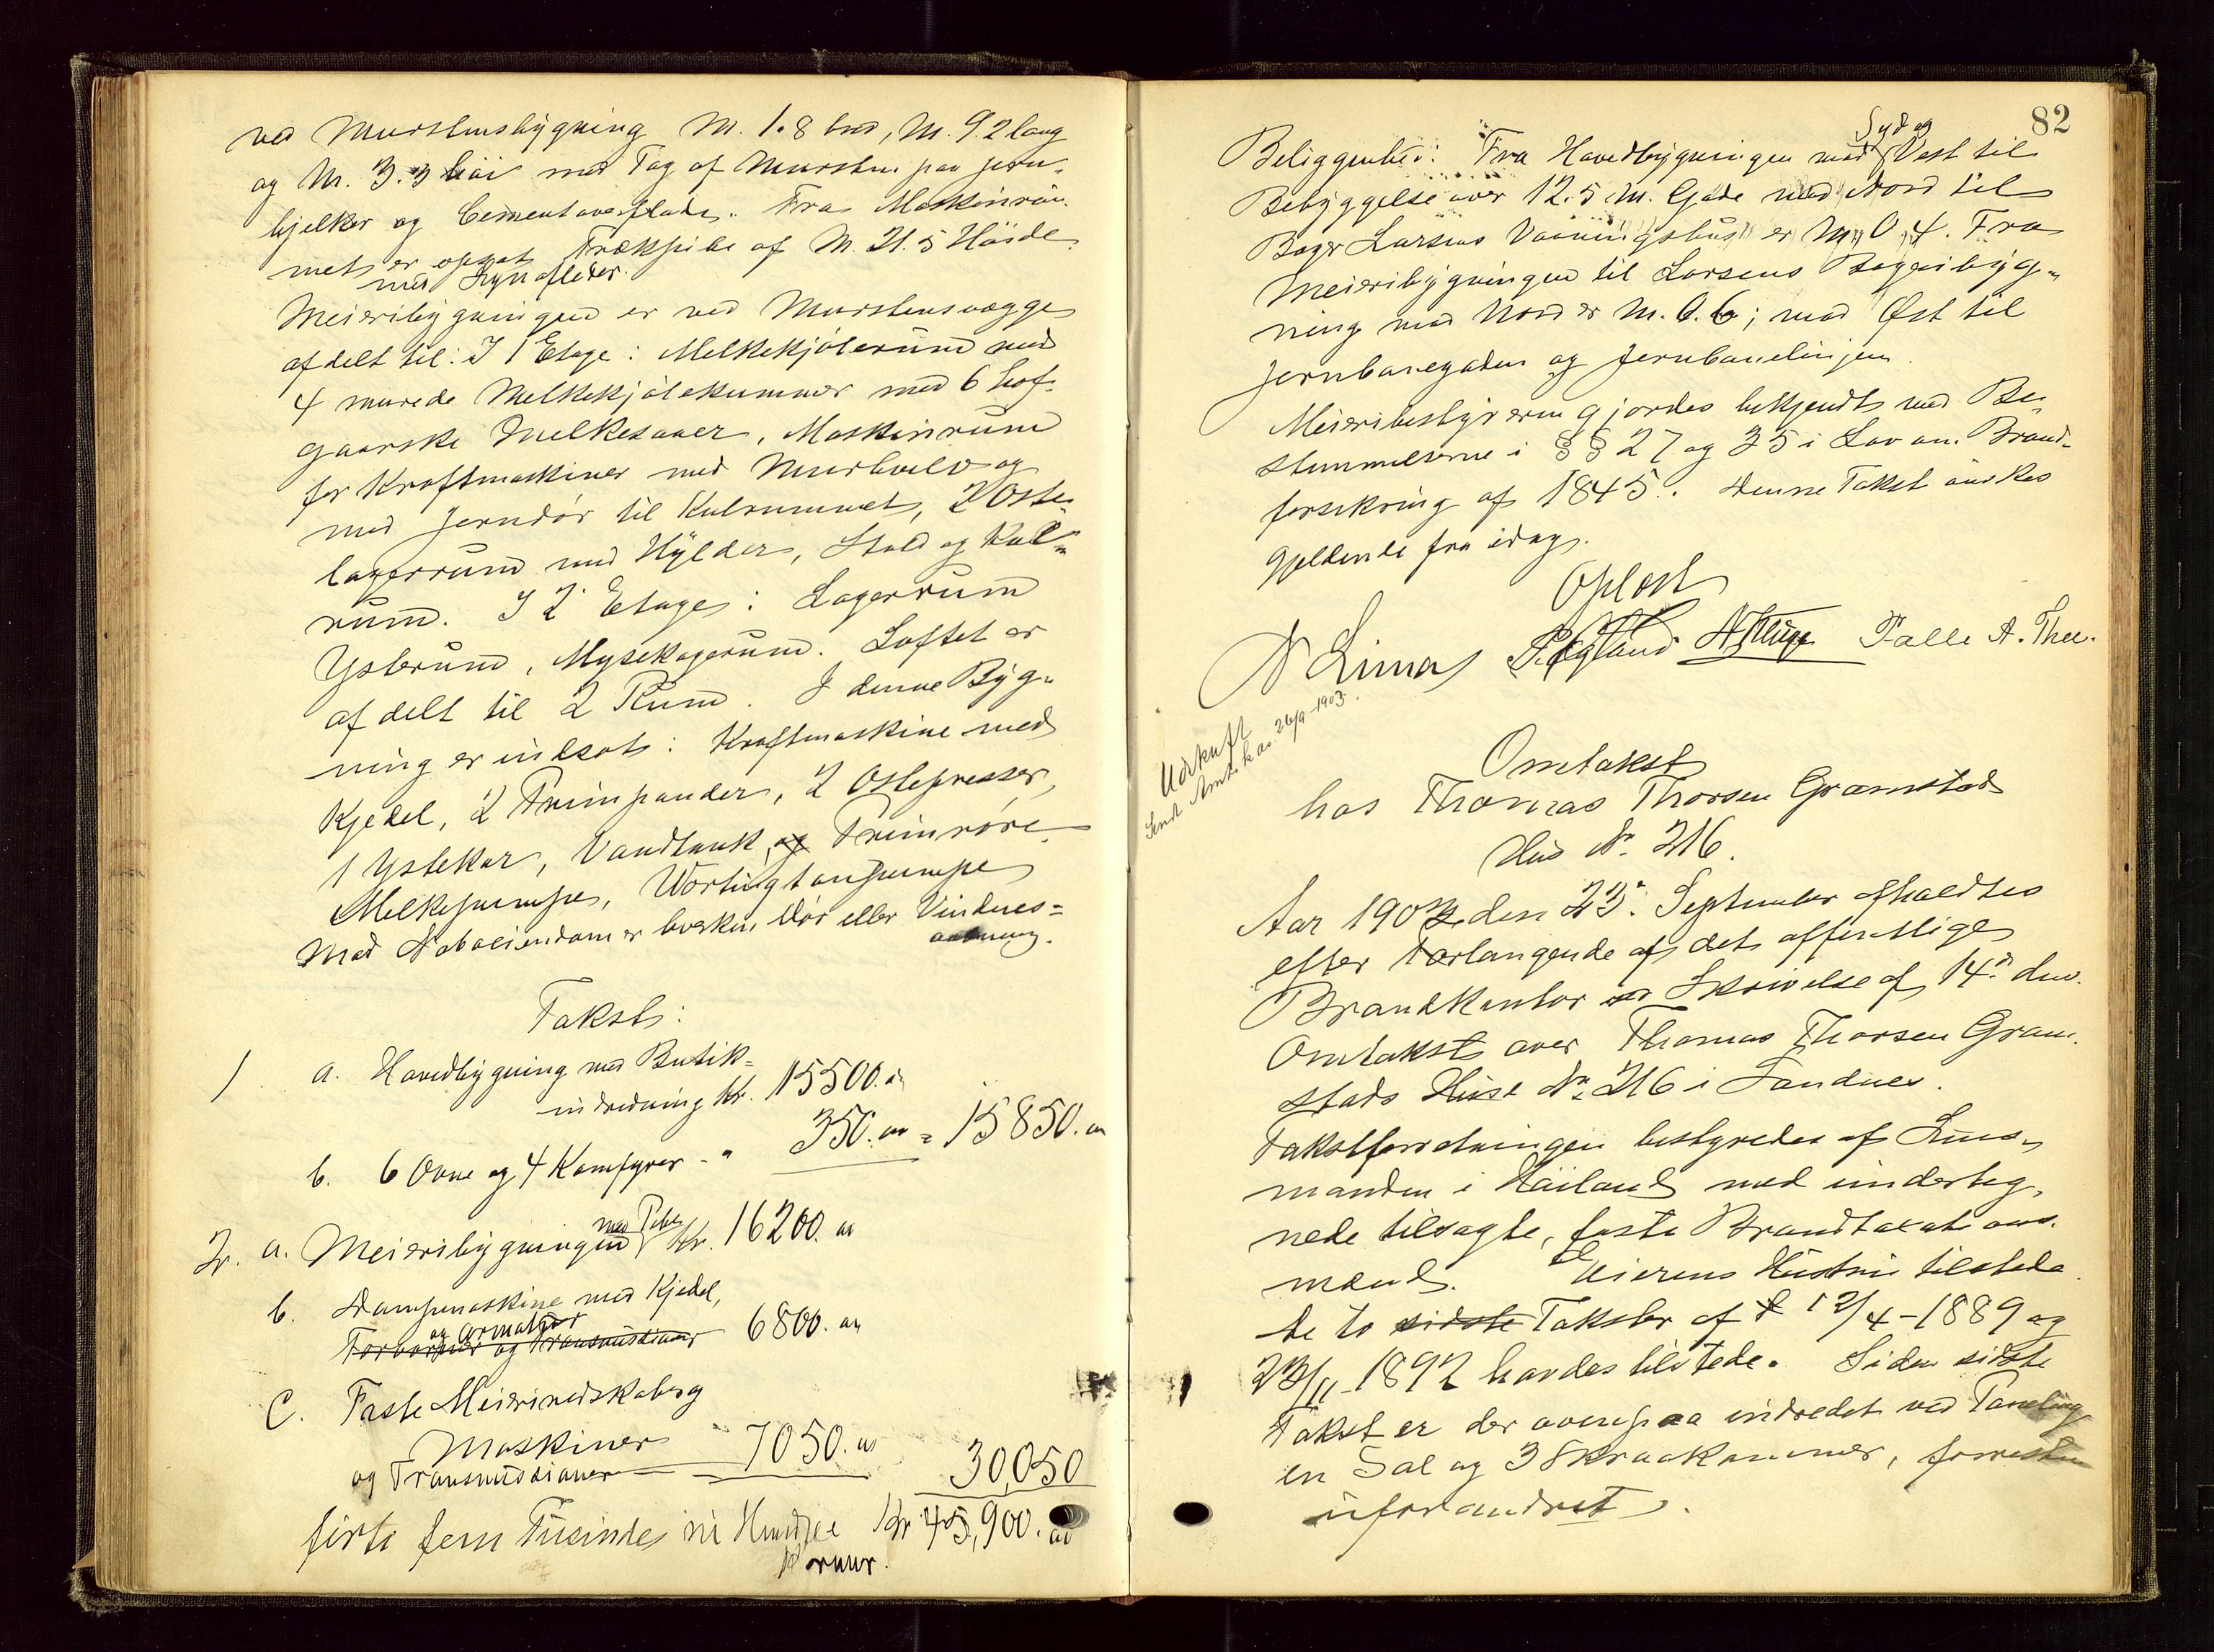 ved Murstensbygning M. 1.8 bred, M. 9.2 lang
og M. 3.3 høi med Tag af Mursten paa jern-
bjelker og Cementoverflade. Fra Maskinrum-
met er opsat Trækpibe af M. 21.5 Høide
med Lynafleder.
Meieribygningen er ved Murstensvægge
afdelt til: I 1 Etage: Melkekjølerum med
4 murede Melkekjølekummer med 6 hof-
gaarske Melkesaner, Maskinrum
for Kraftmaskiner med Murhvelv og
med Jerndør til Kulrummet, 2 Oste-
lagerrum med Hylder, Stald og Kul-
rum. I 2 Etage: Lagerrum
Ysterum, Mysekogerum. Loftet er
afdelt til 2 Rum. I denne Byg-
ning er indsat: Kraftmaskine med
Kjedel, 2 Primpander, 2 Ostepresser,
1 Ystekar, Vandtank, og Primrøre
Melkepumpe, Wortingtonpumpe
Mod Naboeiendom er hverken Dør eller Vindues=
aabning.
Takst:
1 a. Hovedbygning med Butik=
indredning Kr. 15500. "
b. 6 Ovne og 4 Komfyrer - " 350. " = 15850. "
2. a. Meieribygningen med Pibe Kr. 16200. "
b. Dampmaskine med Kjedel,
og Armatur
og Transmissioner 6800. "
C. Faste Meieriredskaber og
Maskiner
og Transmissioner — 7050. " 30,050
firti fem Tusinde ni Hundre Kr 45,900. "
Kroner.
82
Beliggenhed: Fra Hovedbygningen mod Syd og Vest til
Bebyggelse over 12.5 M. Gade mod Nord til
Bager Larsens Vaaningshus er M. 0.4. Fra
Meieribygningen til Larsens Bageribyg-
ning mod Nord er M. 0.6; mod Øst til
Jernbanegaden og Jernbanelinjen.
Meieribestyreren gjordes bekjendt med Be-
stemmelserne i §§ 27 og 35 i Lov om Brand-
forsikring af 1845. Denne Takst ønskes
gjeldende fra idag.
Oplæst
N Lima P. Egland Palle A. Thu.
Udskrift
Sendt Amtsk. 26/9-1903.
Omtakst
hos Thomas Thorsen Gramstad
Hus No. 216.
Aar 1903 den 23. September afholdtes
efter Forlangende af det offentlige
Brandkontor Skrivelse af 14. dns.
Omtakst over Thomas Thorsen Gram-
stads Huse No. 216 i Sandnes.
Takstforretningen bestyredes af Lens-
manden i Høiland med underteg-
nede tilsagte, faste Brandtaxations-
mænd. Eierens Hustru tilstede
De to sidste Takster af 12/4-1889 og
23/11-1892 havdes tilstede. Siden sidste
Takst er der ovenpaa indredet ved Paneling
en Sal og 3 Skraakammer, forresten
uforandret.